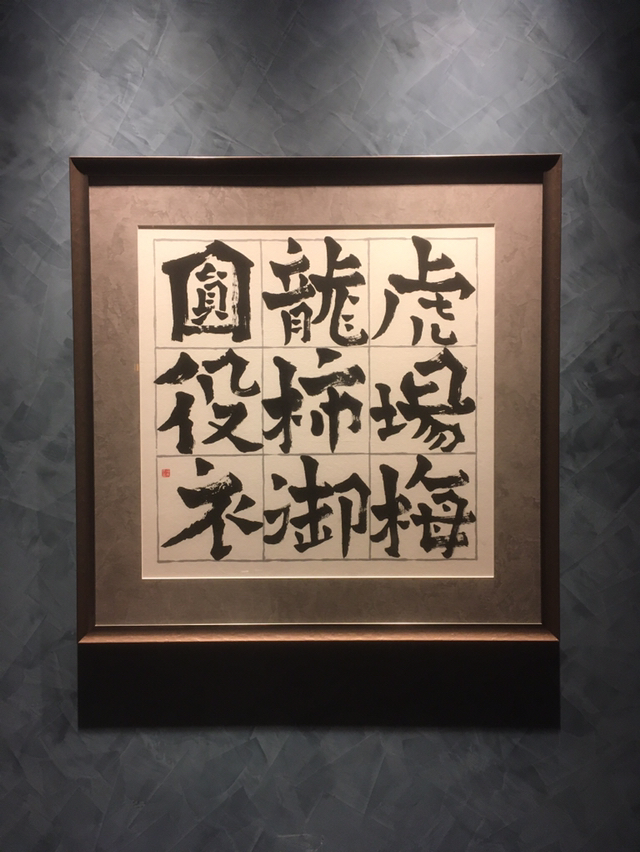 虎場梅
龍柿御
圓役衣